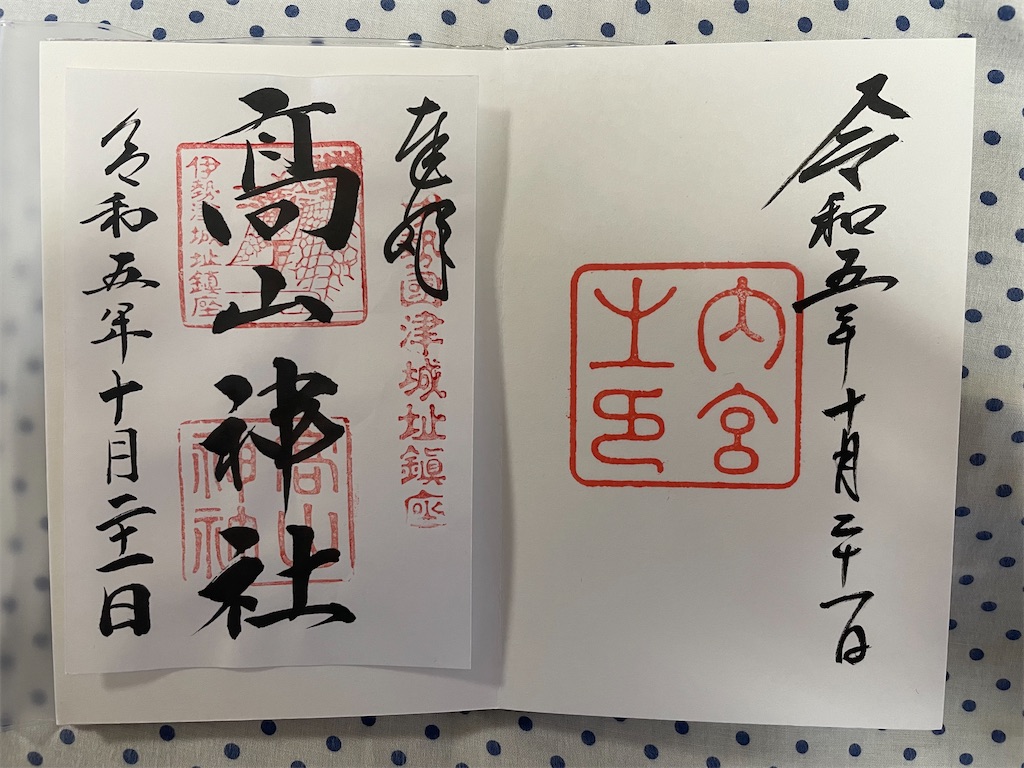 令和五年十月二十一日
内宮
之印
奉拝
伊勢國津城址鎮座
高山神社
伊勢津城址鎮座
高山
神社
令和五年十月二十一日